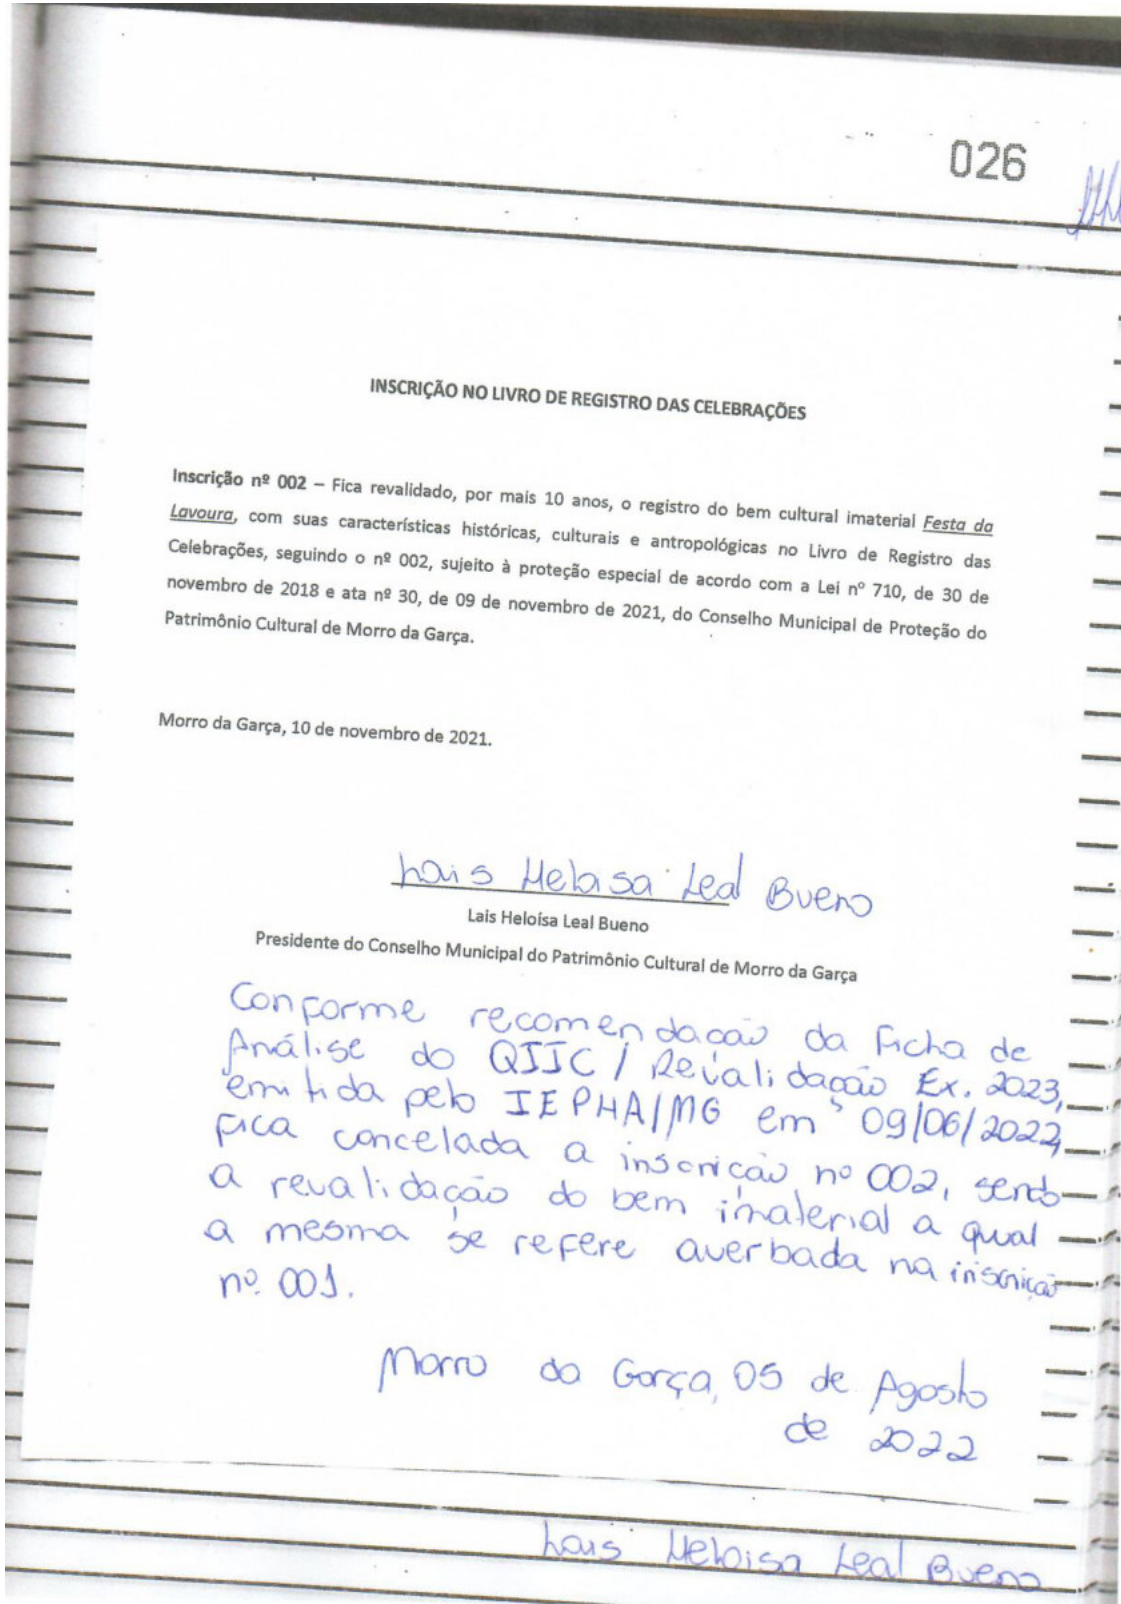 026
INSCRIÇÃO NO LIVRO DE REGISTRO DAS CELEBRAÇÕES
Inscrição nº 002 – Fica revalidado, por mais 10 anos, o registro do bem cultural imaterial Festa da
Lavoura, com suas características históricas, culturais e antropológicas no Livro de Registro das
Celebrações, seguindo o nº 002, sujeito à proteção especial de acordo com a Lei nº 710, de 30 de
novembro de 2018 e ata nº 30, de 09 de novembro de 2021, do Conselho Municipal de Proteção do
Patrimônio Cultural de Morro da Garça.
Morro da Garça, 10 de novembro de 2021.
Lais Heloisa Leal Bueno
Lais Heloísa Leal Bueno
Presidente do Conselho Municipal do Patrimônio Cultural de Morro da Garça
Conforme recomendação da Ficha de
Análise do QIIC / Revalidação Ex. 2023,
emitida pelo IEPHA/MG em 09/06/2022,
fica cancelada a inscrição nº 002, sendo
a revalidação do bem imaterial a qual
a mesma se refere averbada na inscrição
nº 001.
Morro da Garça, 05 de Agosto
de 2022
Lais Heloisa Leal Bueno